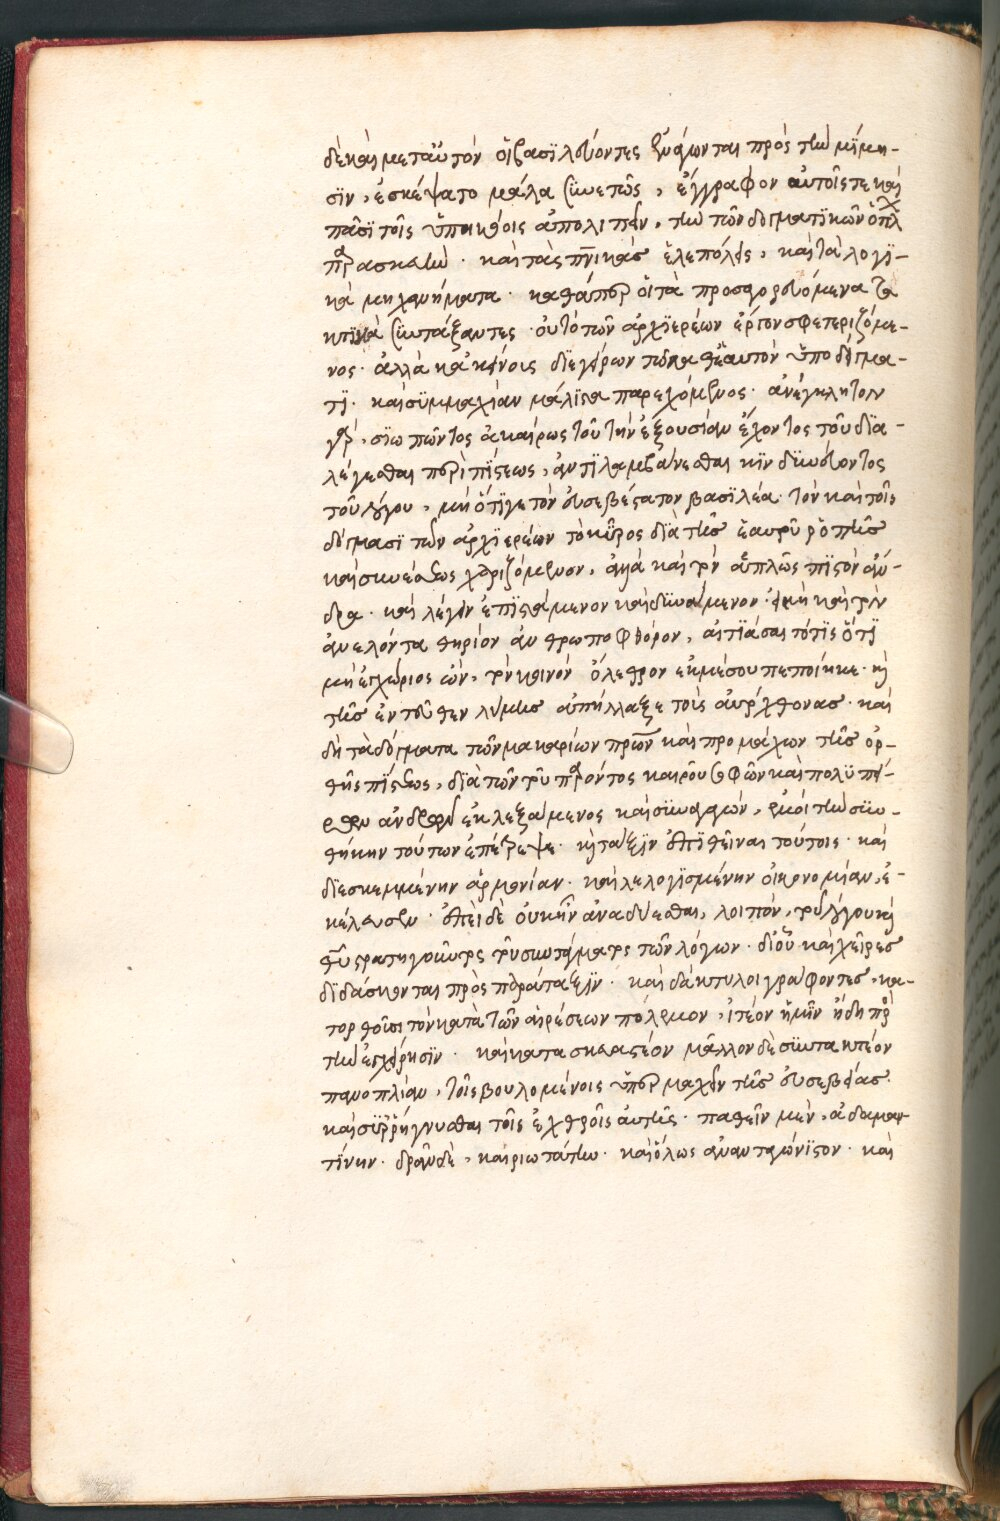 δὲ καὶ μετ' αὐτὸν οἱ βασιλεύοντες ἐνάγωνται πρὸς τὴν μίμη-
σιν, ἐσκέψατο μάλα συνετῶς, ἔγγραφον αὐτοῖς τε καὶ
πᾶσι τοῖς ὑπηκόοις ἀπολιπεῖν, τὴν τῶν δογματικῶν ὅπλων
παρασκευὴν. καὶ τὰς πνικὰς ἑλεπόλεις, καὶ τὰ λογι-
κὰ μηχανήματα. καθάπερ οἱ τὰ προσαγορευόμενα τα
κτικὰ συντάξαντες. οὐ τὸ τῶν ἀρχιερέων ἔργον σφετεριζόμε-
νος. ἀλλὰ κἀκείνοις διεγείρων τῷ καθ' ἑαυτὸν ὑποδείγμα-
τι. καὶ συμμαχίαν μάλιστα παρεχόμενος. ἀνέγκλητον
γὰρ, σιωπῶντος ἀκαίρως τοῦ τὴν ἐξουσίαν ἔχοντος τοῦ δια-
λέγεσθαι περὶ πίστεως, ἀντιλαμβάνεσθαι κινδυνεύοντος
τοῦ λόγου, μὴ ὅτι γε τὸν εὐσεβέστατον βασιλέα. τὸν καὶ τοῖς
δόγμασι τῶν ἀρχιερέων τὸ κῦρος διὰ τῆς ἑαυτοῦ ῥοπῆς
καὶ συνέσεως χαριζόμενον, ἀλλὰ καὶ τὸν ἁπλῶς πιστὸν ἄν-
δρα. καὶ λέγειν ἐπιστάμενον καὶ δυνάμενον. ἐπεὶ καὶ τὸν
ἀνελόντα θηρίον ἀνθρωποφθόρον, αἰτιάσαιτό τις ὅτι
μὴ ἐγχώριος ὢν, τὸν κοινὸν ὄλεθρον ἐκ μέσου πεποίηκε. καὶ
τῆς ἐντεῦθεν λύμης ἀπήλλαξε τοὺς αὐτόχθονας. καὶ
δὴ τὰ δόγματα τῶν μακαρίων πρων καὶ προμάχων τῆς ὀρ-
θῆς πίστεως, διὰ τῶν τοῦ παρόντος καιροῦ σοφῶν καὶ πολυπεί-
ρων ἀνδρῶν ἐκλεξάμενος καὶ συναγαγών, ἐμοὶ τὴν συν-
θήκην τούτων ἐπέτρεψε. καὶ τάξιν ἐπιθεῖναι τούτοις. καὶ
διεσκεμμένην ἁρμονίαν. καὶ λελογισμένην οἰκονομίαν, ἐ-
κέλευσεν. ἐπεὶ δὲ οὐκ ἦν ἀναδύεσθαι, λοιπόν, τοῦ λόγου καὶ
θεοῦ στρατηγοῦντος τοῦ συντάγματος τῶν λόγων. δι' οὗ καὶ χεῖρες
διδάσκονται πρὸς παράταξιν. καὶ δάκτυλοι γράφοντες, κα-
τορθοῦσι τὸν κατὰ τῶν αἱρέσεων πόλεμον, ἰτέον ἡμῖν ἤδη πρὸς
τὴν ἐγχείρησιν. καὶ κατασκευαστέον μᾶλλον δὲ συντακτέον
πανοπλίαν, τοῖς βουλομένοις ὑπερμαχεῖν τῆς εὐσεβείας.
καὶ συρρήγνυσθαι τοῖς ἐχθροῖς αὐτῆς. παθεῖν μὲν, ἀδαμαν-
τίνην. δρᾶν δὲ, καιριωτάτην. καὶ ὅλως ἀνανταγώνιστον. καὶ